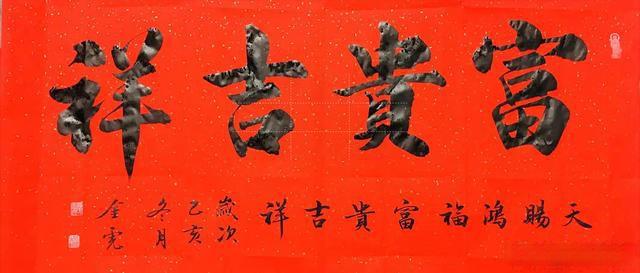 富貴吉祥
天賜鴻福富貴吉祥
歲次
己亥
冬月
金